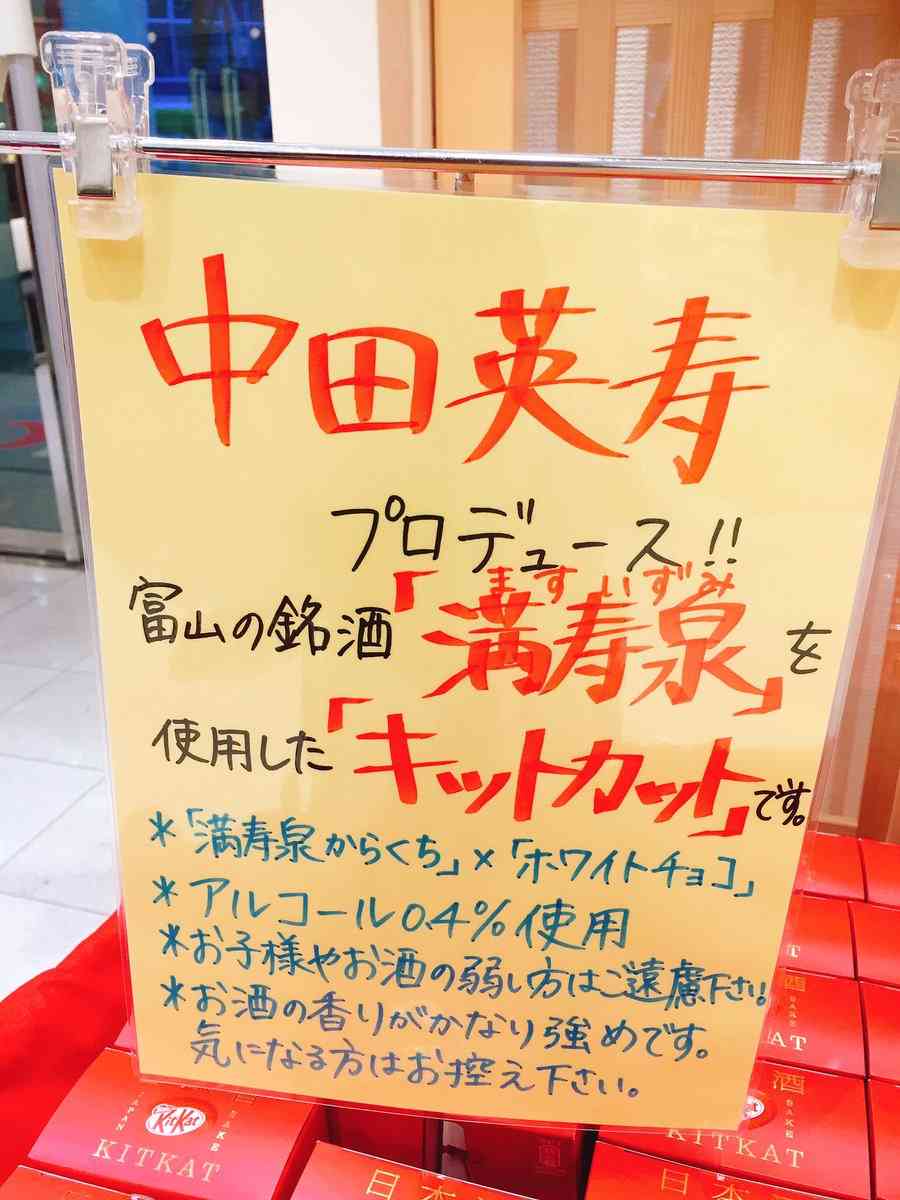 中田英寿
プロデュース!!
ますいずみ
富山の銘酒「満寿泉」を
使用した「キットカット」です。
*「満寿泉からくち」×「ホワイトチョコ」
*アルコール0.4%使用
*お子様やお酒の弱い方はご遠慮下さい!
*お酒の香りがかなり強めです。
気になる方はお控え下さい。
酒
SAKE
JAPAN
KitKat
SAKE
KITKAT
酒
SAKE
KITKAT
日本
日本